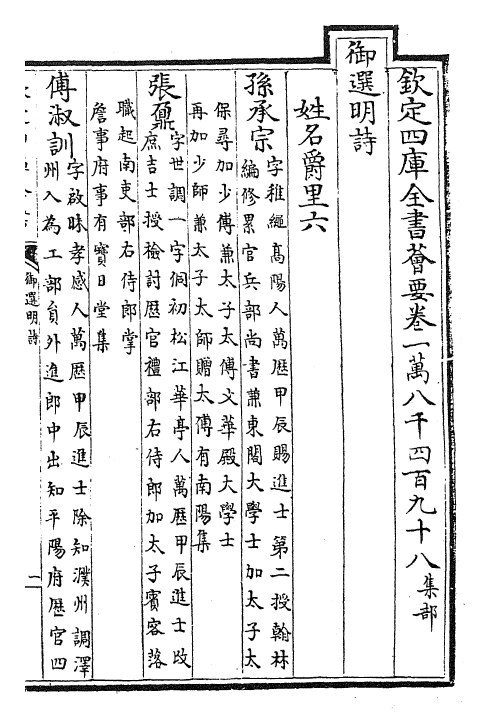 欽定四庫全書薈要卷一萬八千四百九十八集部
御選明詩
姓名爵里六
孫承宗字稚繩高陽人萬歷甲辰賜進士第二授翰林
編修累官兵部尚書兼東閣大學士加太子太
保尋加少傅兼太子太傅文華殿大學士
再加少師兼太子太師贈太傅有南陽集
張鼐字世調一字侗初松江華亭人萬歷甲辰進士改
庶吉士授檢討歷官禮部右侍郎加太子賓客落
職起南吏部右侍郎掌
詹事府事有寳日堂集
傅淑訓字啟昧孝感人萬歷甲辰進士除知濮州調澤
州入為工部員外進郎中出知平陽府歷官四
御選明詩
一